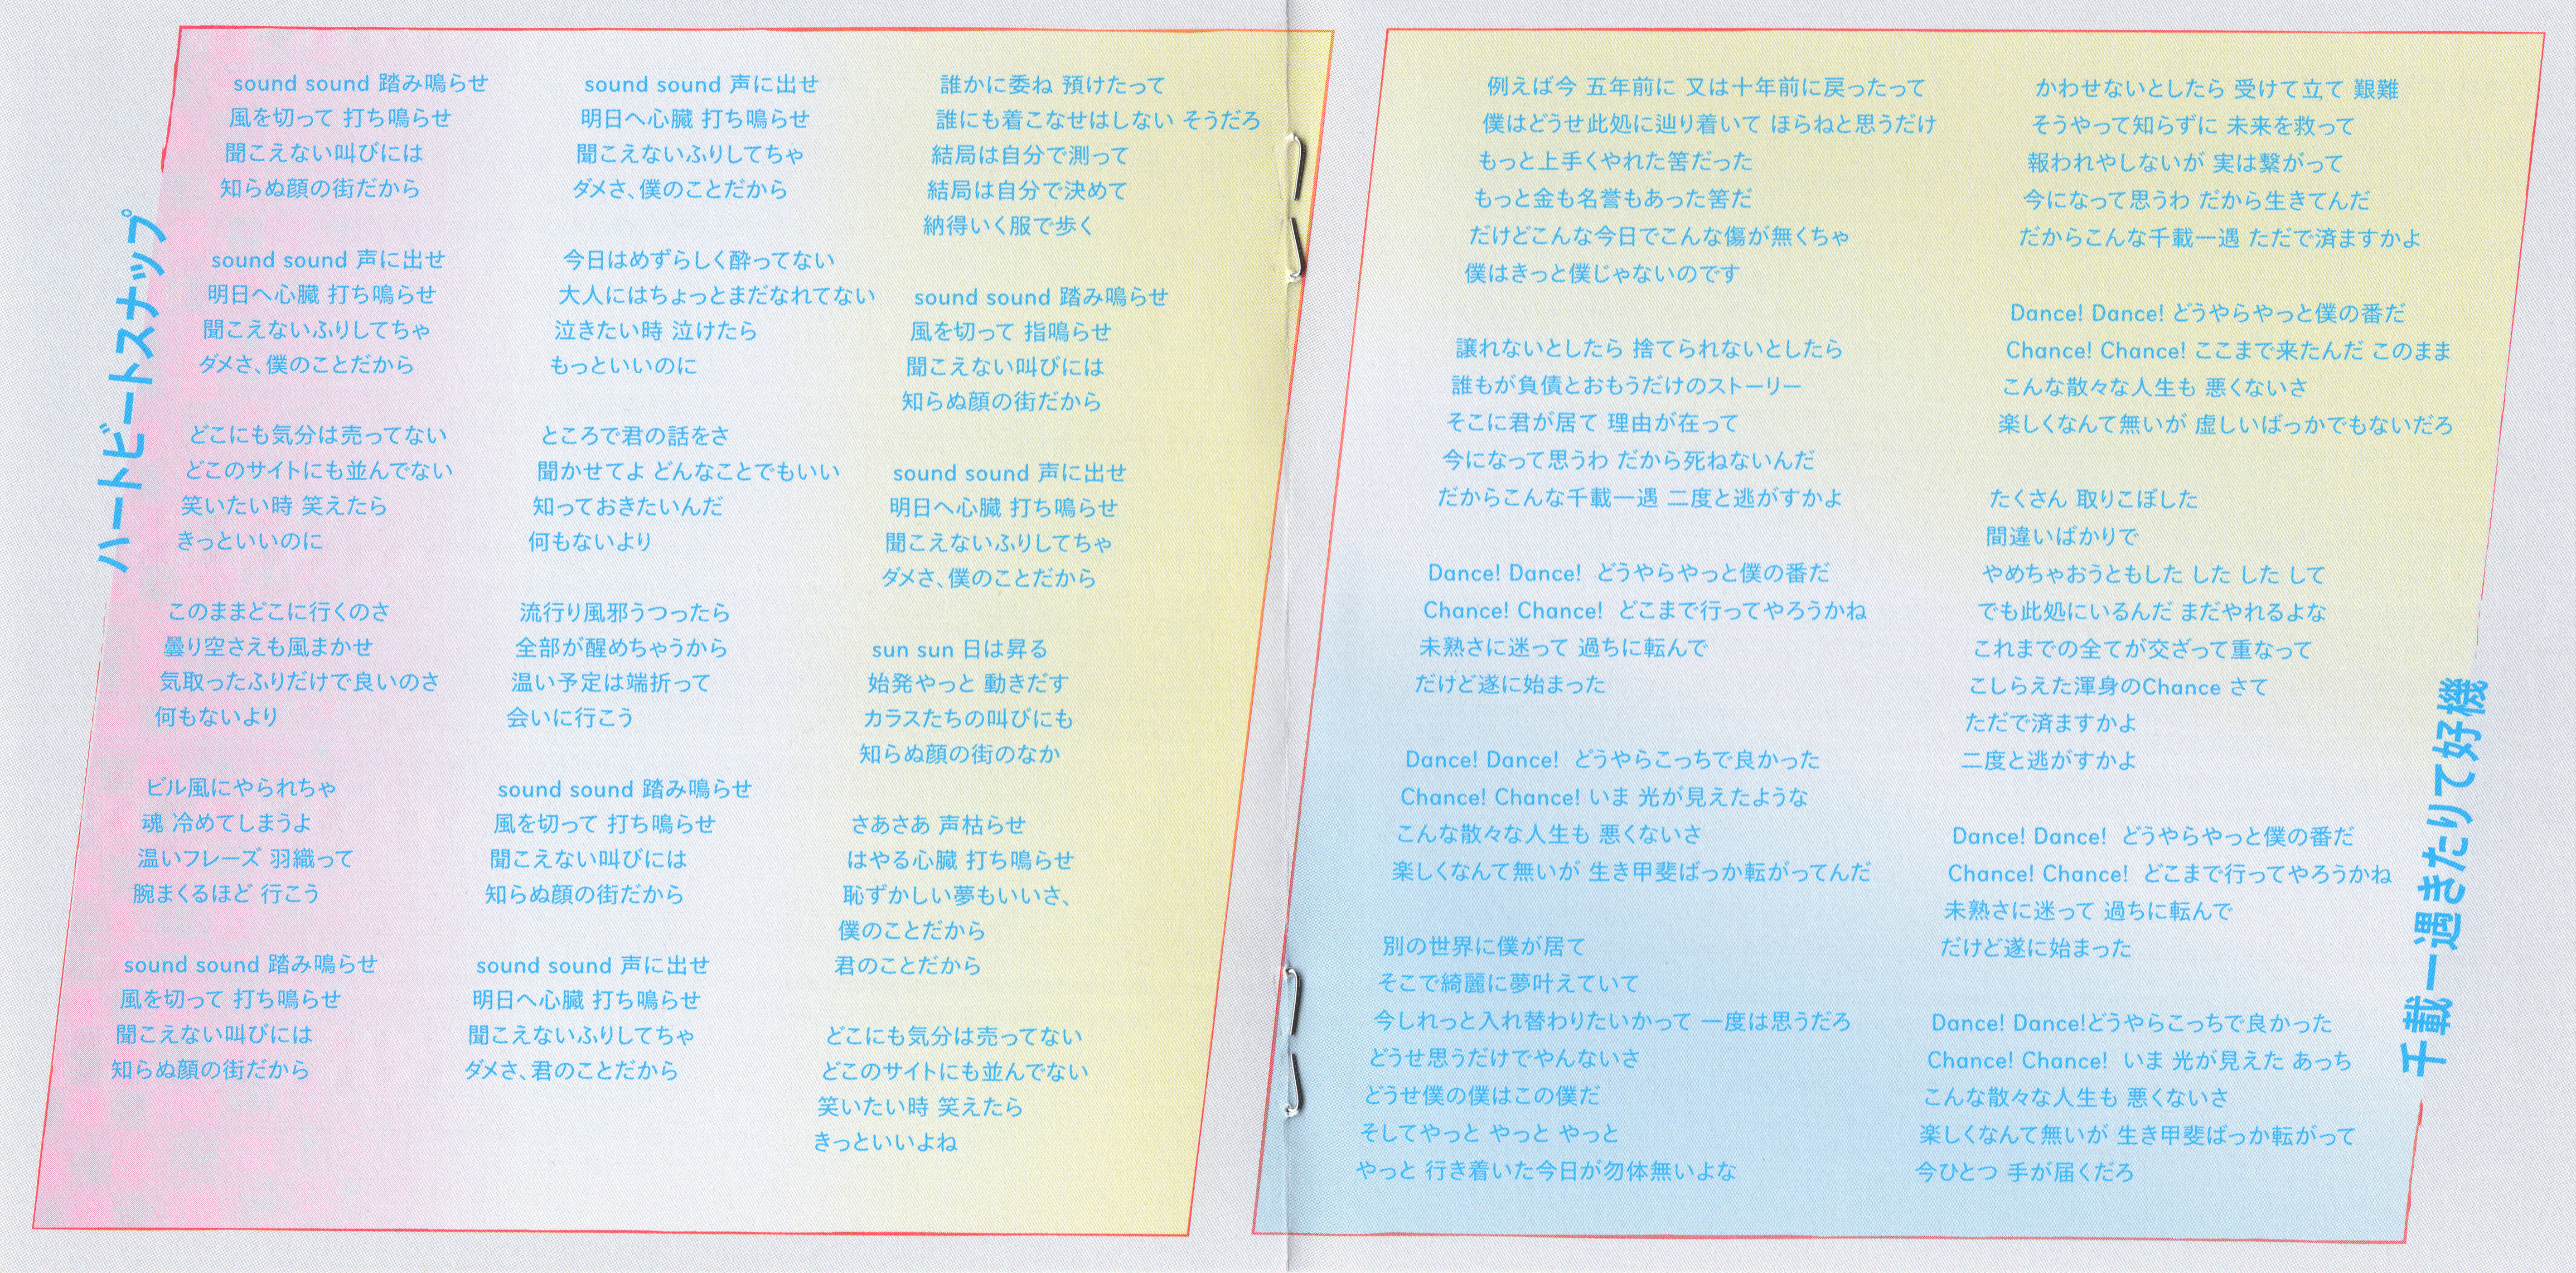 ハートビートスナップ
sound sound 踏み鳴らせ
風を切って 打ち鳴らせ
聞こえない叫びには
知らぬ顔の街だから
sound sound 声に出せ
明日へ心臓 打ち鳴らせ
聞こえないふりしてちゃ
ダメさ、僕のことだから
どこにも気分は売ってない
どこのサイトにも並んでない
笑いたい時 笑えたら
きっといいのに
このままどこに行くのさ
曇り空さえも風まかせ
気取ったふりだけで良いのさ
何もないより
ビル風にやられちゃ
魂 冷めてしまうよ
温いフレーズ 羽織って
腕まくるほど 行こう
sound sound 踏み鳴らせ
風を切って 打ち鳴らせ
聞こえない叫びには
知らぬ顔の街だから
sound sound 声に出せ
明日へ心臓 打ち鳴らせ
聞こえないふりしてちゃ
ダメさ、僕のことだから
今日はめずらしく酔ってない
大人にはちょっとまだなれてない
泣きたい時 泣けたら
もっといいのに
ところで君の話をさ
聞かせてよ どんなことでもいい
知っておきたいんだ
何もないより
流行り風邪うつったら
全部が醒めちゃうから
温い予定は端折って
会いに行こう
sound sound 踏み鳴らせ
風を切って 打ち鳴らせ
聞こえない叫びには
知らぬ顔の街だから
sound sound 声に出せ
明日へ心臓 打ち鳴らせ
聞こえないふりしてちゃ
ダメさ、君のことだから
誰かに委ね 預けたって
誰にも着こなせはしない そうだろ
結局は自分で測って
結局は自分で決めて
納得いく服で歩く
sound sound 踏み鳴らせ
風を切って 指鳴らせ
聞こえない叫びには
知らぬ顔の街だから
sound sound 声に出せ
明日へ心臓 打ち鳴らせ
聞こえないふりしてちゃ
ダメさ、僕のことだから
sun sun 日は昇る
始発やっと 動きだす
カラスたちの叫びにも
知らぬ顔の街のなか
さあさあ 声枯らせ
はやる心臓 打ち鳴らせ
恥ずかしい夢もいいさ、
僕のことだから
君のことだから
どこにも気分は売ってない
どこのサイトにも並んでない
笑いたい時 笑えたら
きっといいよね
例えば今 五年前に 又は十年前に戻ったって
僕はどうせ此処に辿り着いて ほらねと思うだけ
もっと上手くやれた筈だった
もっと金も名誉もあった筈だ
だけどこんな今日でこんな傷が無くちゃ
僕はきっと僕じゃないのです
譲れないとしたら 捨てられないとしたら
誰もが負債とおもうだけのストーリー
そこに君が居て 理由が在って
今になって思うわ だから死ねないんだ
だからこんな千載一遇 二度と逃がすかよ
Dance! Dance! どうやらやっと僕の番だ
Chance! Chance! どこまで行ってやろうかね
未熟さに迷って 過ちに転んで
だけど遂に始まった
Dance! Dance! どうやらこっちで良かった
Chance! Chance! いま 光が見えたような
こんな散々な人生も 悪くないさ
楽しくなんて無いが 生き甲斐ばっか転がってんだ
別の世界に僕が居て
そこで綺麗に夢叶えていて
今しれっと入れ替わりたいかって 一度は思うだろ
どうせ思うだけでやんないさ
どうせ僕の僕はこの僕だ
そしてやっと やっと やっと
やっと 行き着いた今日が勿体無いよな
かわせないとしたら 受けて立て 艱難
そうやって知らずに 未来を救って
報われやしないが 実は繋がって
今になって思うわ だから生きてんだ
だからこんな千載一遇 ただで済ますかよ
Dance! Dance! どうやらやっと僕の番だ
Chance! Chance! ここまで来たんだ このまま
こんな散々な人生も 悪くないさ
楽しくなんて無いが 虚しいばっかでもないだろ
たくさん 取りこぼした
間違いばかりで
やめちゃおうともした した した して
でも此処にいるんだ まだやれるよな
これまでの全てが交ざって重なって
こしらえた渾身のChance さて
ただで済ますかよ
二度と逃がすかよ
Dance! Dance! どうやらやっと僕の番だ
Chance! Chance! どこまで行ってやろうかね
未熟さに迷って 過ちに転んで
だけど遂に始まった
Dance! Dance!どうやらこっちで良かった
Chance! Chance! いま 光が見えた あっち
こんな散々な人生も 悪くないさ
楽しくなんて無いが 生き甲斐ばっか転がって
今ひとつ 手が届くだろ
千載一遇きたりて好機